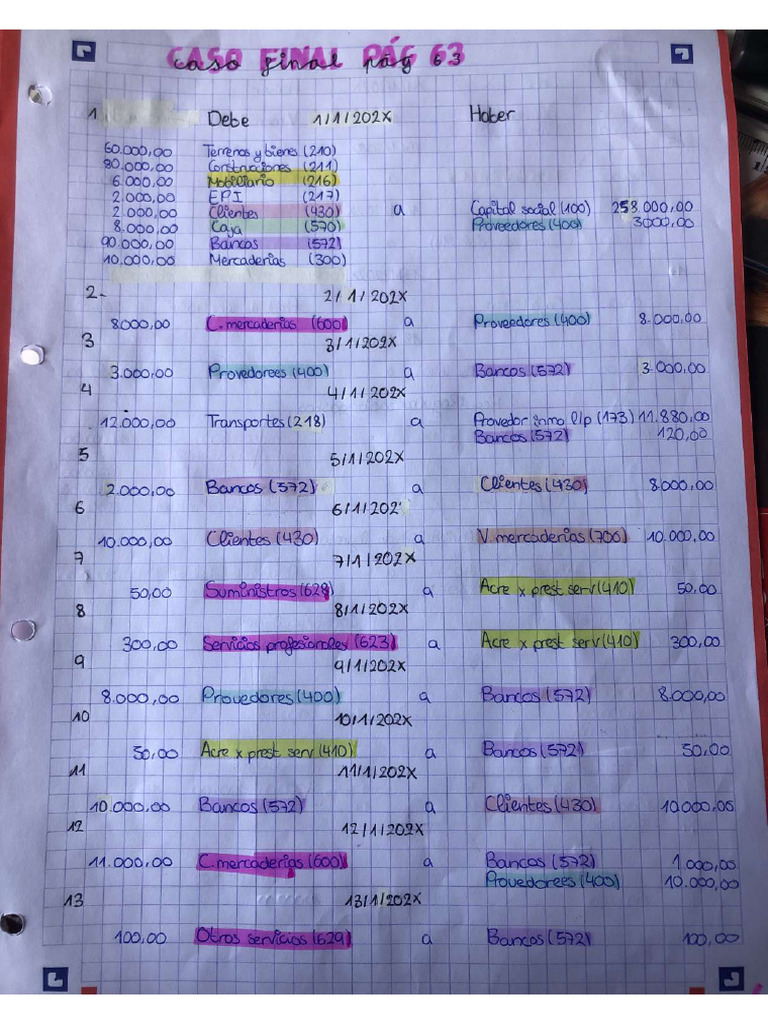 CASO FINAL PÁG 63
caso final pág 63
1 Debe 1/1/202X Haber
60.000,00 Terrenos y bienes (210)
80.000,00 Construcciones (211)
6.000,00 Mobiliario (216)
2.000,00 EPI (217)
2.000,00 Clientes (430) a Capital social (100) 258.000,00
8.000,00 Caja (570) Proveedores (400) 3000,00
90.000,00 Bancos (572)
10.000,00 Mercaderias (300)
2- 2/1/202X
8000,00 C. mercaderias (600) a Proveedores (400) 8.000,00
3 3/1/202X
3.000,00 Provedorees (400) a Bancos (572) 3.000,00
4 4/1/202X
12.000,00 Transportes (218) a Provedor inmo l/p (173) 11.880,00
Bancos (572) 120,00
5 5/1/202X
2.000,00 Bancos (572) a Clientes (430) 8.000,00
6 6/1/202
10.000,00 Clientes (430) a V. mercaderias (700) 10.000,00
7 7/1/202X
50,00 Suministros (628) a Acre x prest serv (410) 50,00
8 8/1/202X
300,00 Servicios profesionales (623) a Acre x prest serv (410) 300,00
9 9/1/202X
8.000,00 Provedores (400) a Bancos (572) 8.000,00
10 10/1/202X
50,00 Acre x prest serv (410) a Bancos (572) 50,00
11 11/1/202X
10.000,00 Bancos (572) a Clientes (430) 10.000,00
12 12/1/202X
11.000,00 C. mercaderias (600) a Bancos (572) 1.000,00
Provedorees (400) 10.000,00
13 13/1/202X
100,00 Otros servicios (629) a Bancos (572) 100,00